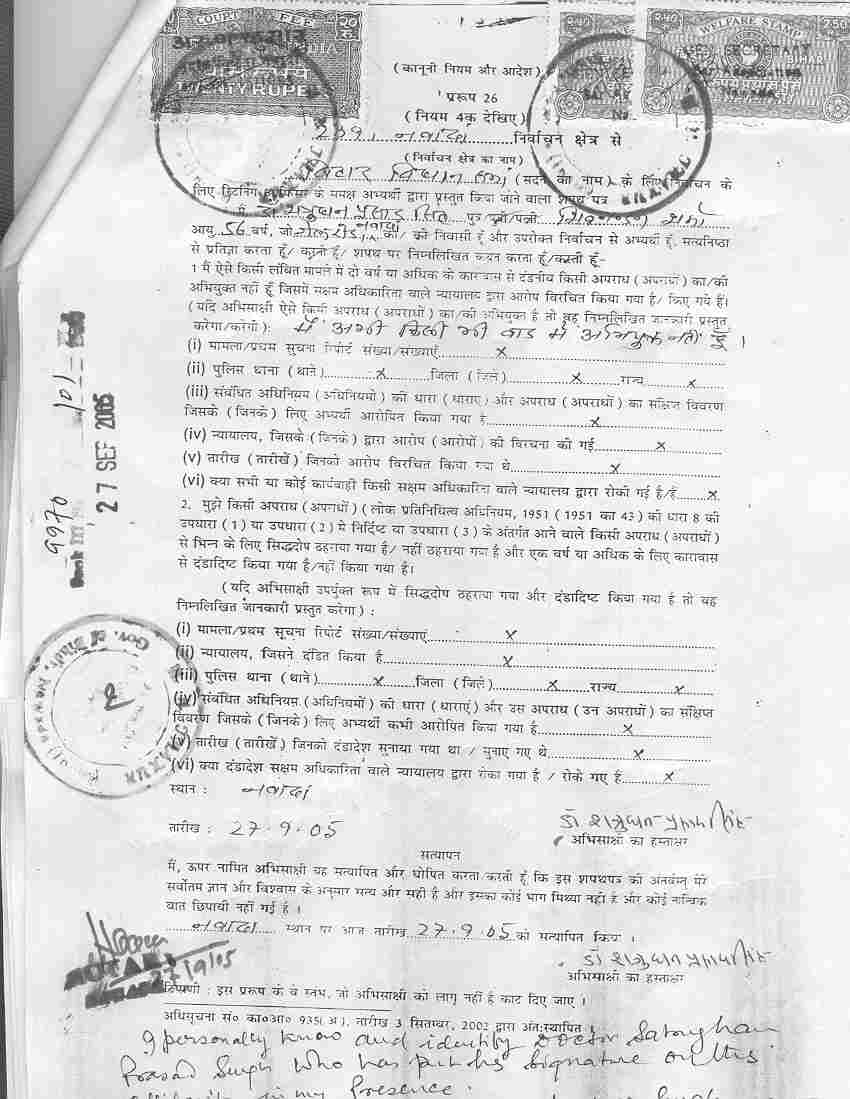 COURT FEE
20 रु.
INDIA
TWENTY RUPEES
WELFARE STAMP
BIHAR
(कानूनी नियम और आदेश)
प्ररूप 26
(नियम 4क देखिए)
नवादा निर्वाचन क्षेत्र से
(निर्वाचन क्षेत्र का नाम)
बिहार विधान सभा (सदन का नाम) के लिए निर्वाचन के
लिए रिटर्निंग ऑफिसर के समक्ष अभ्यर्थी द्वारा प्रस्तुत किया जाने वाला शपथ पत्र
मैं डा. शत्रुघ्न प्रसाद सिंह पुत्र/पुत्री/पत्नी शिवनन्दन शर्मा
आयु 56 वर्ष, जो नवादा का/की निवासी हूँ और उपरोक्त निर्वाचन से अभ्यर्थी हूँ, सत्यनिष्ठा
से प्रतिज्ञा करता हूँ/करती हूँ/शपथ पर निम्नलिखित कथन करता हूँ/करती हूँ-
1 मैं ऐसे किसी लंबित मामले में दो वर्ष या अधिक के कारावास से दंडनीय किसी अपराध (अपराधों) का/की
अभियुक्त नहीं हूँ जिसमें सक्षम अधिकारिता वाले न्यायालय द्वारा आरोप विरचित किया गया है/किए गये हैं।
(यदि अभिसाक्षी ऐसे किसी अपराध (अपराधों) का/की अभियुक्त है तो वह निम्नलिखित जानकारी प्रस्तुत
करेगा/करेगी): मैं अभी किसी भी वाद में अभियुक्त नहीं हूँ।
(i) मामला/प्रथम सूचना रिपोर्ट संख्या/संख्याएँ x
(ii) पुलिस थाना (थाने) x जिला (जिले) x राज्य x
(iii) संबंधित अधिनियम (अधिनियमों) की धारा (धाराएं) और अपराध (अपराधों) का संक्षिप्त विवरण
जिसके (जिनके) लिए अभ्यर्थी आरोपित किया गया है x
(iv) न्यायालय, जिसके (जिनके) द्वारा आरोप (आरोपों) की विरचना की गई x
(v) तारीख (तारीखें) जिनको आरोप विरचित किया गया थे x
(vi) क्या सभी या कोई कार्यवाही किसी सक्षम अधिकारिता वाले न्यायालय द्वारा रोकी गई है/हैं x
9970
101
27 SEP 2005
2. मुझे किसी अपराध (अपराधों) (लोक प्रतिनिधित्व अधिनियम, 1951 (1951 का 43) की धारा 8 की
उपधारा (1) या उपधारा (2) में निर्दिष्ट या उपधारा (3) के अंतर्गत आने वाले किसी अपराध (अपराधों)
से भिन्न के लिए सिद्धदोष ठहराया गया है/नहीं ठहराया गया है और एक वर्ष या अधिक के लिए कारावास
से दंडादिष्ट किया गया है/नहीं किया गया है।
(यदि अभिसाक्षी उपर्युक्त रूप में सिद्धदोष ठहराया गया और दंडादिष्ट किया गया है तो वह
निम्नलिखित जानकारी प्रस्तुत करेगा) :
(i) मामला/प्रथम सूचना रिपोर्ट संख्या/संख्याएँ x
(ii) न्यायालय, जिसने दंडित किया है x
(iii) पुलिस थाना (थाने) x जिला (जिले) x राज्य x
(iv) संबंधित अधिनियम (अधिनियमों) की धारा (धाराएं) और उस अपराध (उन अपराधों) का संक्षिप्त
विवरण जिसके (जिनके) लिए अभ्यर्थी कभी आरोपित किया गया है x
(v) तारीख (तारीखें) जिनको दंडादेश सुनाया गया था / सुनाए गए थे x
(vi) क्या दंडादेश सक्षम अधिकारिता वाले न्यायालय द्वारा रोका गया है / रोके गए है x
स्थान : नवादा
डॉ शत्रुघ्न प्रसाद सिंह
तारीख : 27.9.05
अभिसाक्षी का हस्ताक्षर
सत्यापन
मैं, ऊपर नामित अभिसाक्षी यह सत्यापित और घोषित करता/करती हूँ कि इस शपथपत्र की अंतर्वस्तु मेरे
सर्वोत्तम ज्ञान और विश्वास के अनुसार सत्य और सही है और इसका कोई भाग मिथ्या नहीं है और कोई तात्विक
बात छिपायी नहीं गई है।
नवादा स्थान पर आज तारीख 27.9.05 को सत्यापित किया।
डॉ शत्रुघ्न प्रसाद सिंह
अभिसाक्षी का हस्ताक्षर
27/9/05
टिप्पणी : इस प्ररूप के वे स्तंभ, जो अभिसाक्षी को लागू नहीं है काट दिए जाए।
अधिसूचना सं० का०आ० 935(अ), तारीख 3 सितम्बर, 2002 द्वारा अंतःस्थापित।
I personally know and identify Doctor Satrughan
Prasad Singh who has put his signature on this
in my Presence.